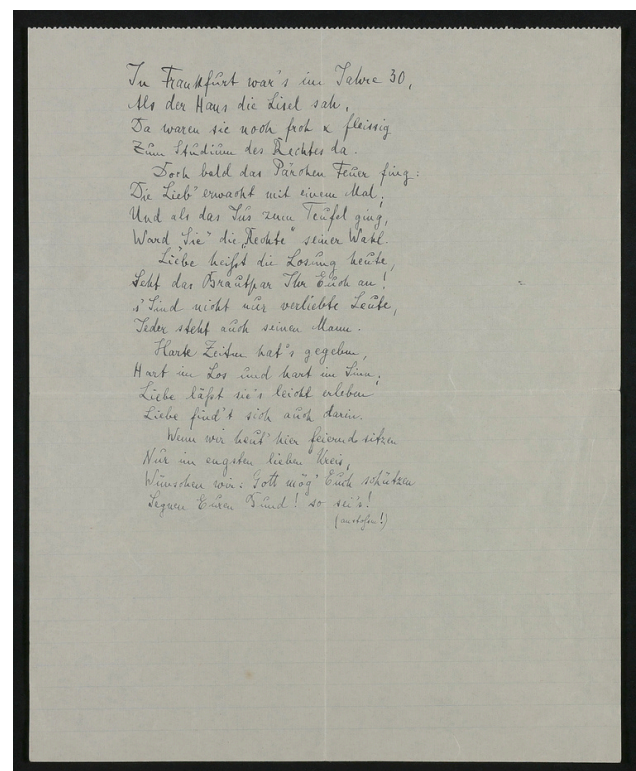 In Frankfurt war's im Jahre 30,
Als der Hans die Lisel sah,
Da waren sie noch froh & fleissig
Zum Studium des Rechtes da.
Doch bald das Pärchen Feuer fing:
Die Lieb' erwacht mit einem Mal,
Und als das Jus zum Teufel ging,
Ward „Sie" die „Rechte" seiner Wahl.
Liebe heißt die Losung heute,
Seht das Brautpar Ihr Euch an!
's Sind nicht nur verliebte Leute,
Jeder steht auch seinen Mann.
Harte Zeiten hat's gegeben,
Hart im Los und hart im Sinn;
Liebe läßt sie's leicht erleben
Liebe find't sich auch darin.
Wenn wir heut' hier feiernd sitzen
Nur im engsten lieben Kreis,
Wünschen wir: Gott mög' Euch schützen
Segnen Euren Bund! so sei's!
(anstoßen!)